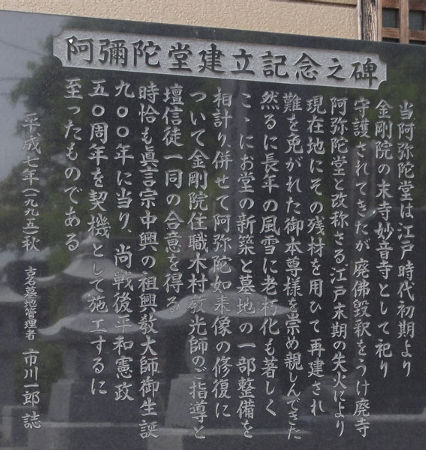 阿彌陀堂建立記念之碑
当阿弥陀堂は江戸時代初期より
金剛院の末寺妙音寺として祀り
守護されてきたが廃佛毀釈をうけ廃寺
阿弥陀堂と改称さる江戸末期の失火により
現在地にその残材を用ひて再建され
難を免がれた御本尊様を崇め親しんできた
然るに長年の風雪に老朽化も著しく
ここにお堂の新築と墓地の一部整備を
相計り、併せて阿弥陀如来像の修復に
ついて金剛院住職木村教光師のご指導と
壇信徒一同の合意を得る
時恰も眞言宗中興の祖興教大師御生誕
九〇〇年に当り、尚戦後平和憲政
五〇周年を契機として施工するに
至ったものである
平成七年(一九九五)秋 墓地管理者 市川一郎 誌